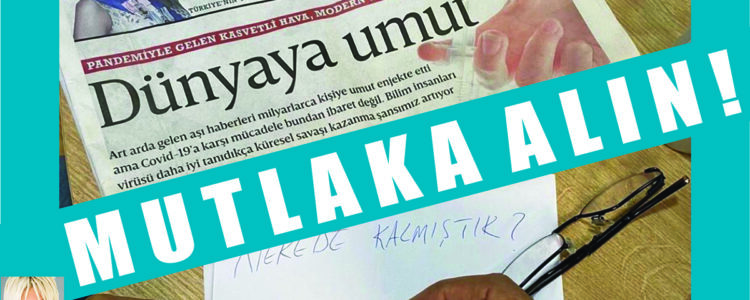 TÜRKİYE'NİN
PANDEMİYLE GELEN KASVETLİ HAVA, MODERN
Dünyaya umut
Art arda gelen aşı haberleri milyarlarca kişiye umut enjekte etti
ama Covid-19'a karşı mücadele bundan ibaret değil. Bilim insanları
virüsü daha iyi tanıdıkça küresel savaşı kazanma şansımız artıyor
MUTLAKA ALIN!
NEREDE KALMIŞTIK?